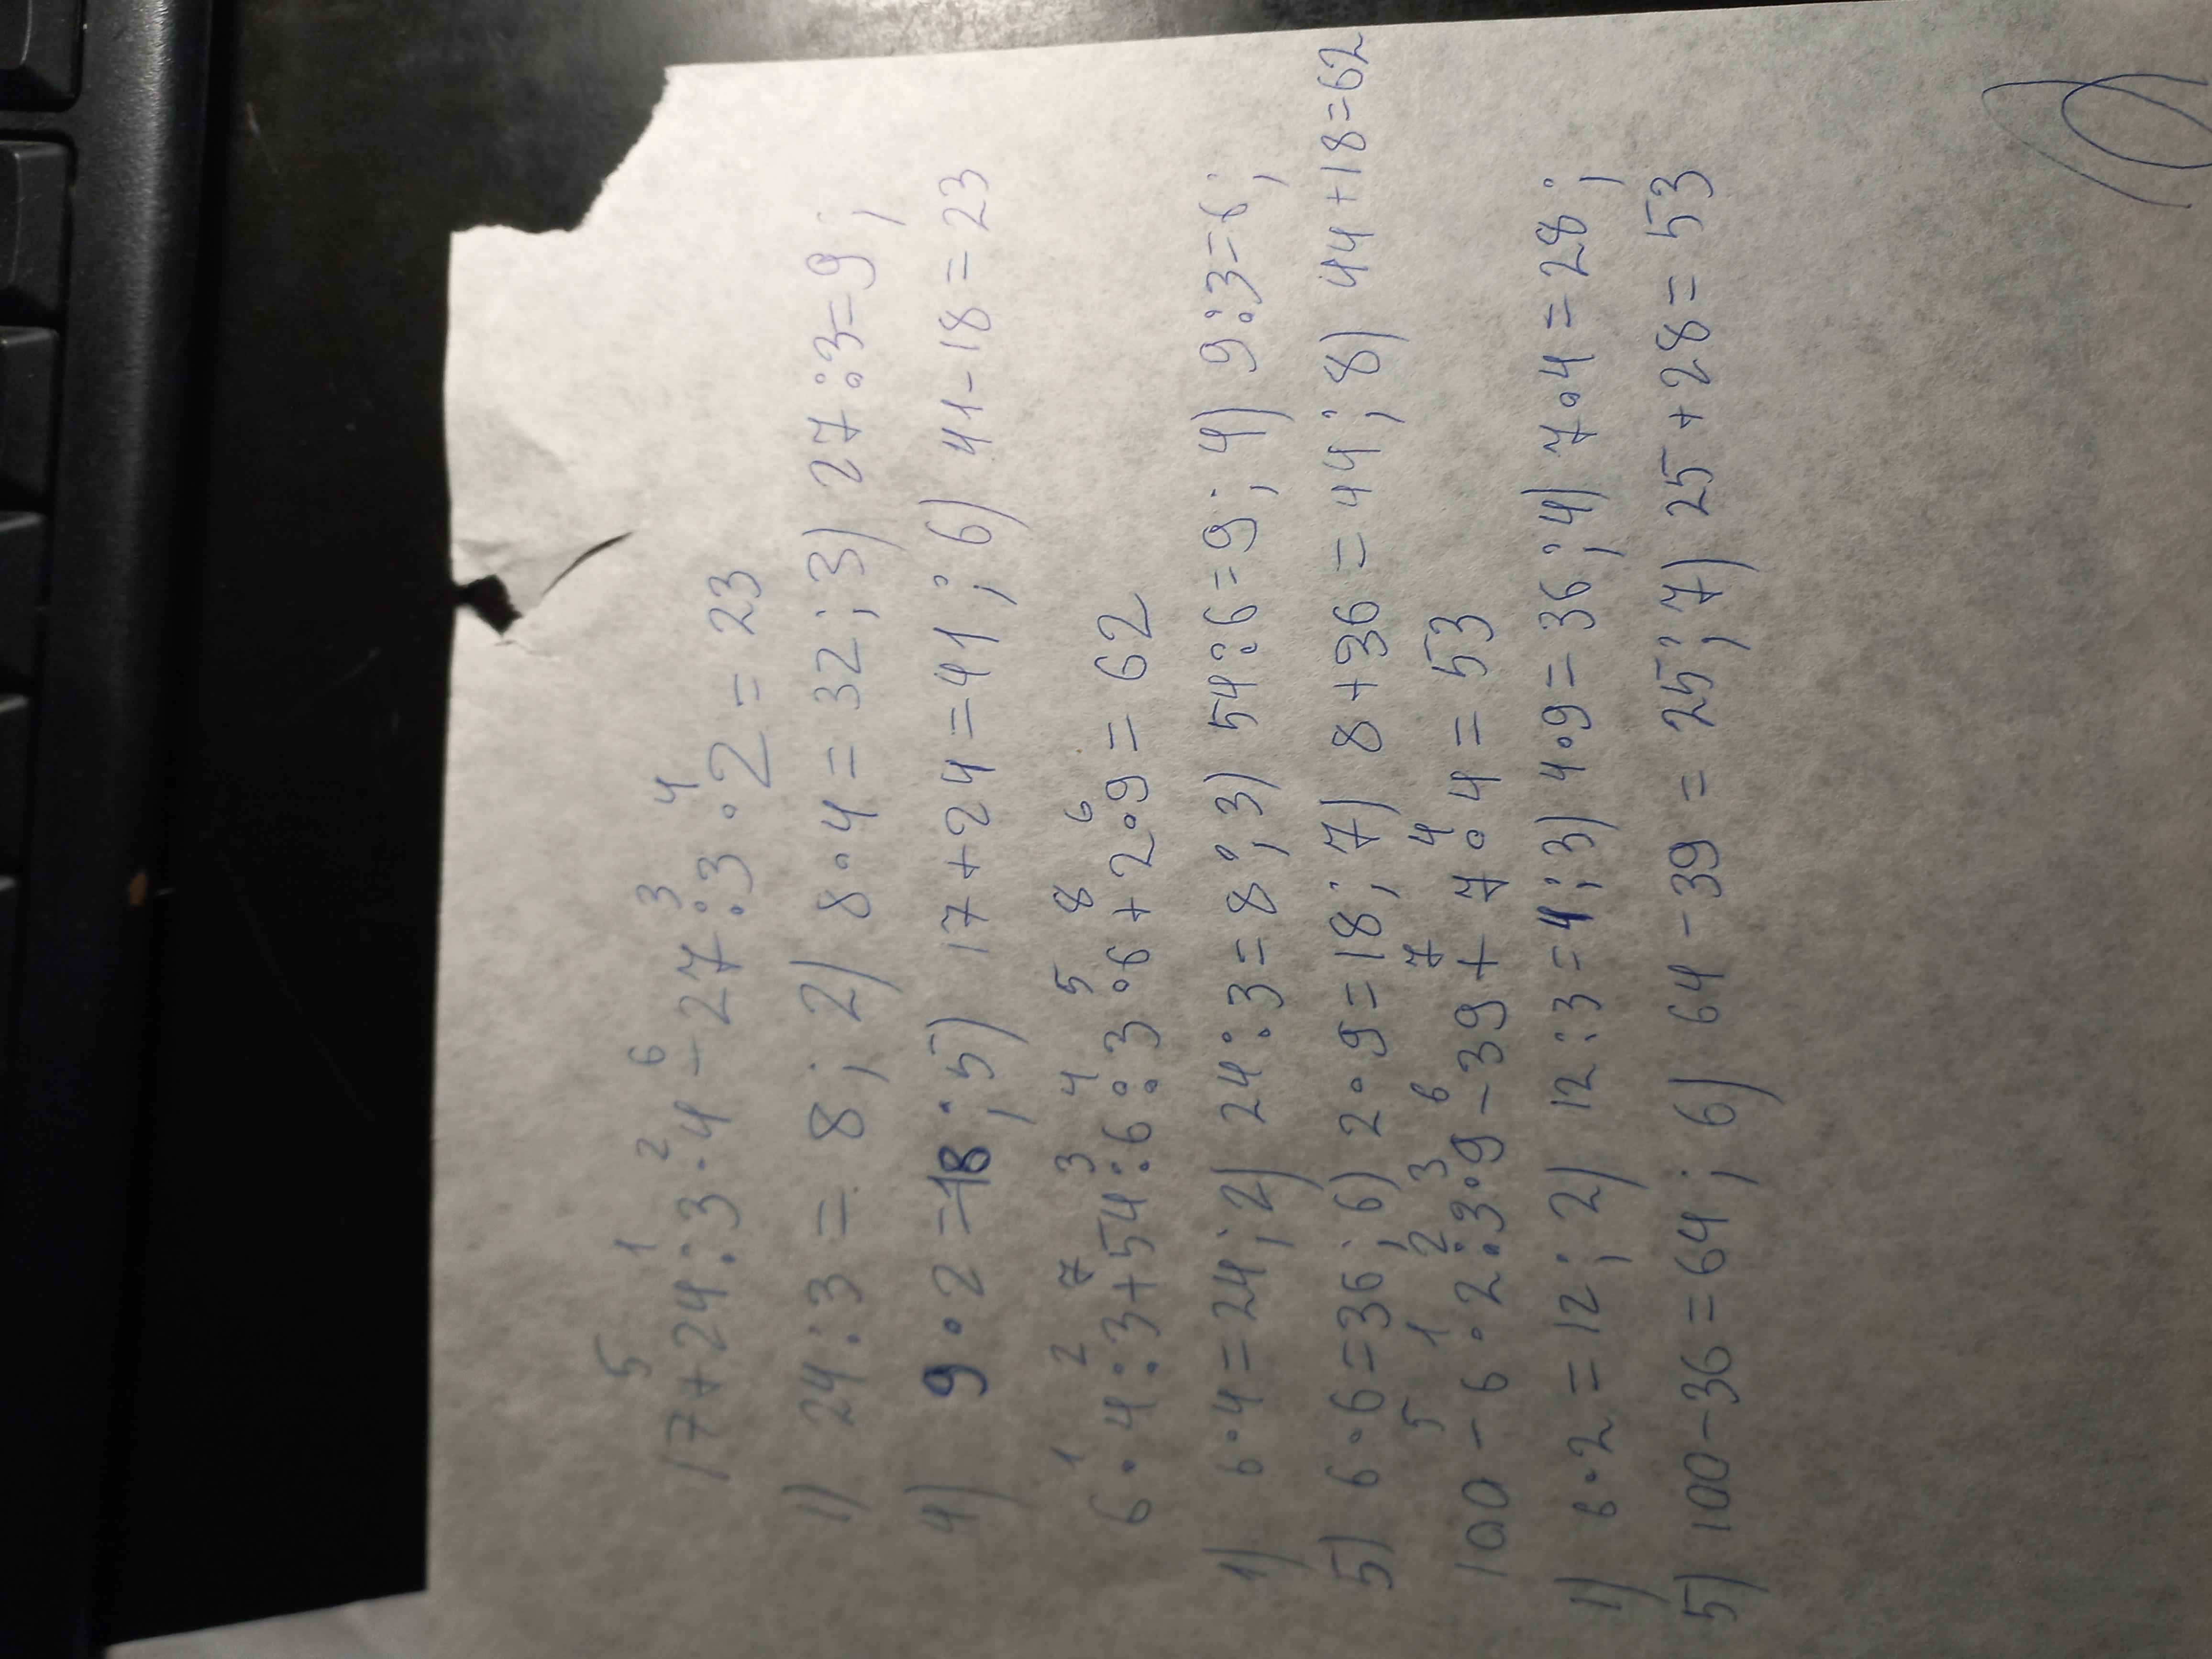 5 1 2 6 3 4
17+24:3·4-27:3·2=23
1) 24:3=8; 2) 8·4=32; 3) 27:3=9;
4) 9·2=18; 5) 17+24=41; 6) 41-18=23
1 2 7 3 4 5 8 6
6·4:3+54:6:3·6+2·9=62
1) 6·4=24; 2) 24:3=8; 3) 54:6=9; 4) 9:3=6;
5) 6·6=36; 6) 2·9=18; 7) 8+36=44; 8) 44+18=62
5 1 2 3 6 7 4
100-6·2:3·9-39+7·4=53
1) 6·2=12; 2) 12:3=4; 3) 4·9=36; 4) 7·4=28;
5) 100-36=64; 6) 64-39=25; 7) 25+28=53